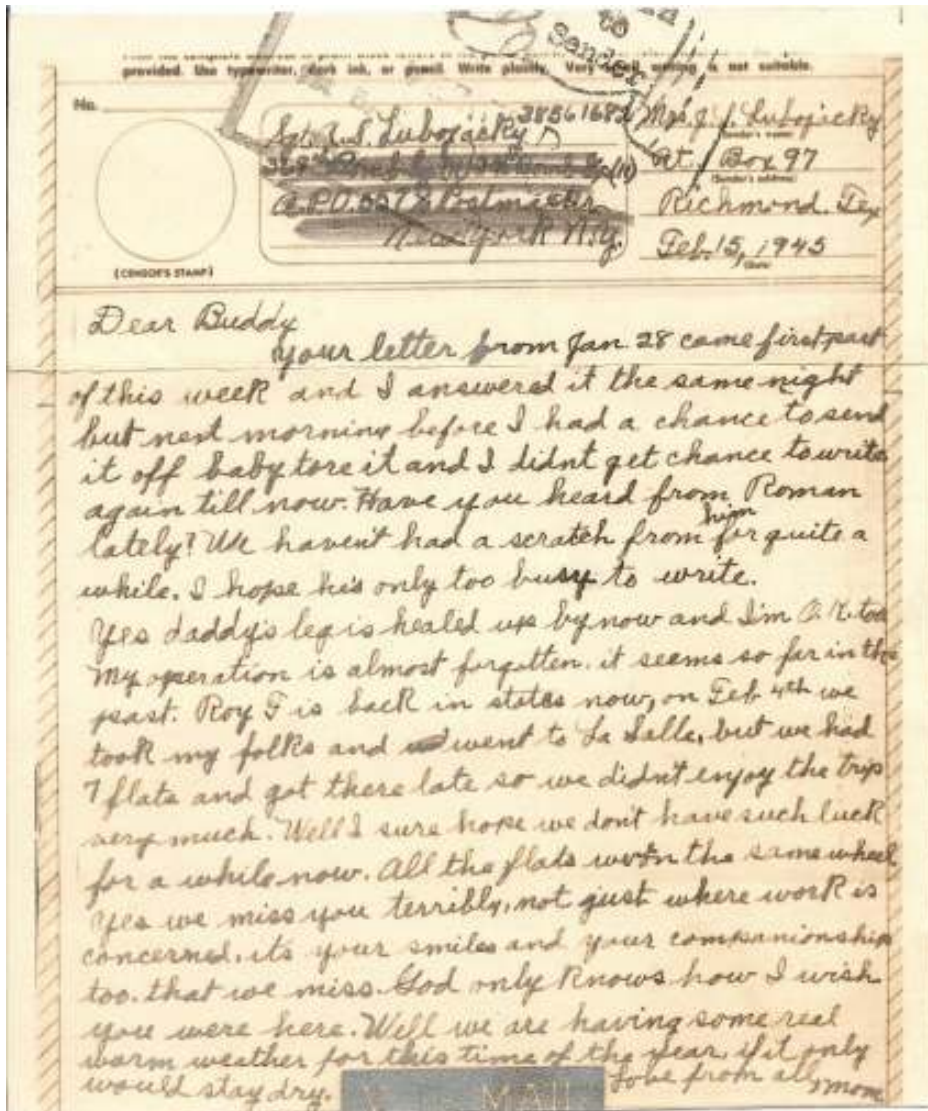 to
Sender
provided. Use typewriter, dark ink, or pencil. Write plainly. Very small writing is not suitable.
No.
(CENSOR'S STAMP)
Sgt. A. S. Lubojacky
A.P.O. 557 % Postmaster
New York N.Y.
Mrs. J. J. Lubojacky
(Sender's name)
Rt. Box 97
(Sender's address)
Richmond. Tex
Feb. 15, 1945
(Date)
Dear Buddy
Your letter from Jan 28 came first part
of this week and I answered it the same night
but next morning before I had a chance to send
it off baby tore it and I didnt get chance to write
again till now. Have you heard from Roman
lately? We havent had a scratch from him for quite a
while. I hope hes only too busy to write.
Yes daddy's leg is healed up by now and I'm O.K. too
My operation is almost forgotten. it seems so far in the
past. Roy F is back in states now, on Feb 4th we
took my folks and went to La Salle, but we had
7 flats and got there late so we didn't enjoy the trip
very much. Well I sure hope we don't have such luck
for a while now. All the flats on the same wheel
Yes we miss you terribly, not just where work is
concerned, its your smiles and your companionship
too. that we miss. God only knows how I wish
you were here. Well we are having some real
warm weather for this time of the year, if it only
would stay dry.
Love from all
Mom
V MAIL